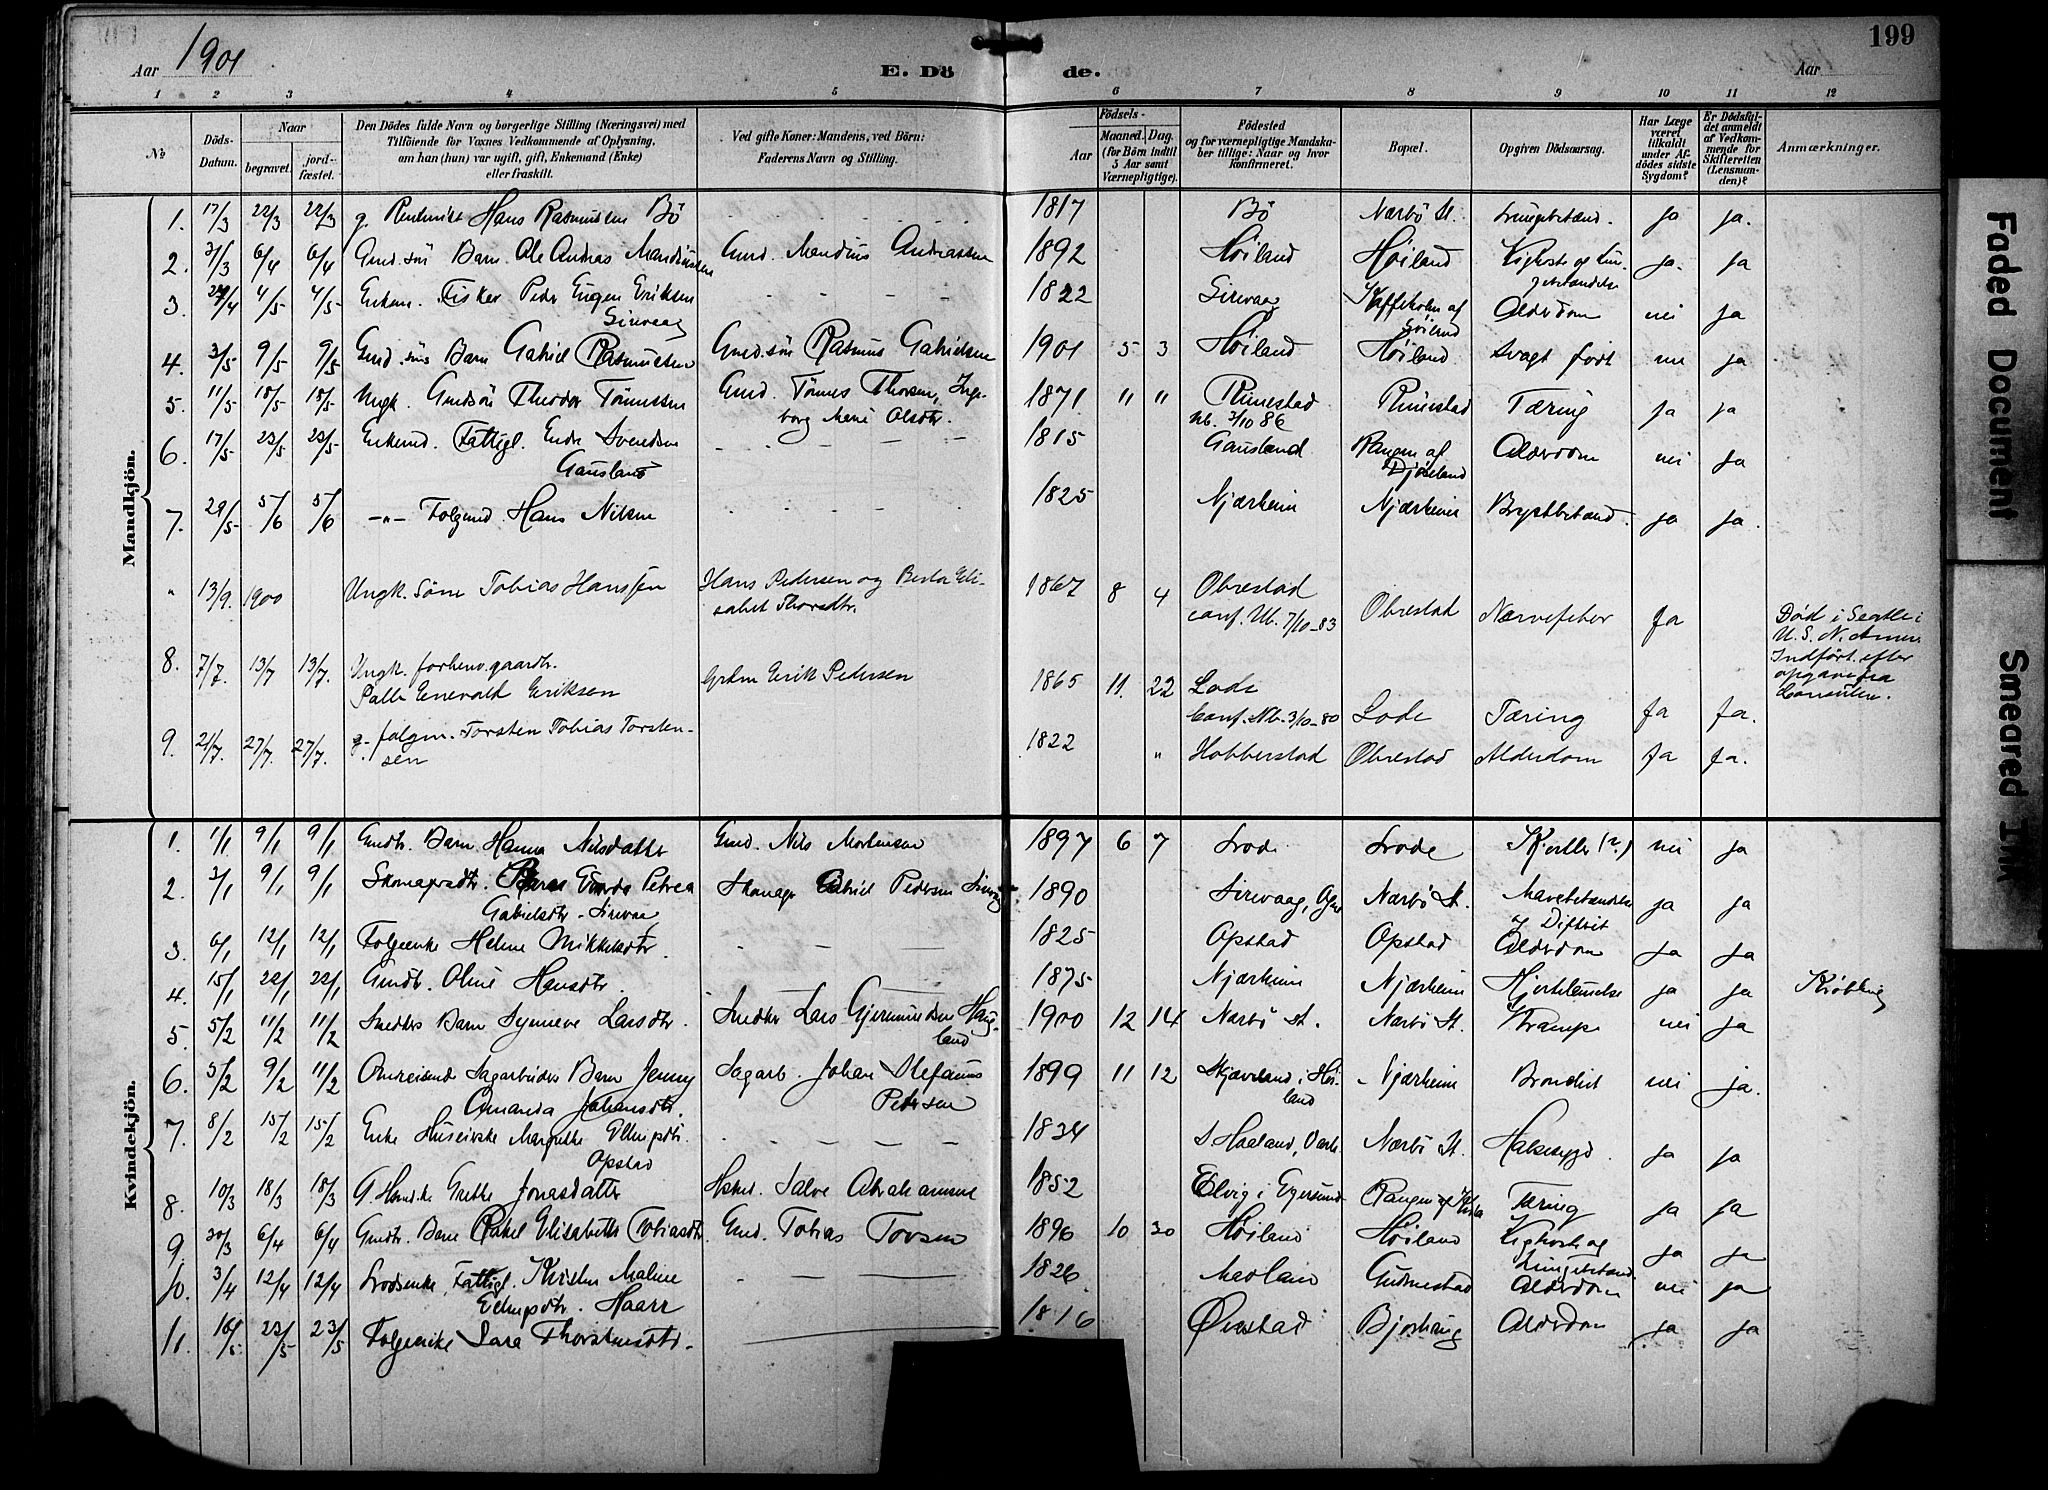 Aar 1901
E. Dö de.
Aar
199
1 2 3 4 5 6 7 8 9 10 11 12
No.
Döds-Datum.
Naar
begravet.
jord-fæstet.
Den Dödes fulde Navn og borgerlige Stilling (Næringsvei) med
Tilföiende for Voxnes Vedkommende af Oplysning,
om han (hun) var ugift, gift, Enkemand (Enke)
eller fraskilt.
Ved gifte Koner: Mandens, ved Börn:
Faderens Navn og Stilling.
Födsels-
Aar
Maaned. Dag.
(for Börn indtil
5 Aar samt
Værnepligtige).
Födested
og for værnepligtige Mandska-
ber tillige: Naar og hvor
konfirmeret.
Bopæl.
Opgiven Dödsaarsag.
Har Læge
været
tilkaldt
under Af-
dödes sidste
Sygdom?
Er Dödsfal-
det anmeldt
af Vedkom-
mende for
Skifteretten
(Lensman-
den)?
Anmærkninger.
Mandkjön.
1. 17/3 22/3 22/3 g. Hans Rasmussen Bö 1817 Bö Nærbö St. Lungebetænd. ja ja.
2. 31/3 6/4 6/4 Gmd.sön Barn Ole Andreas Mandiussen Gmd. Mandius Andreassen 1892 Höiland Höiland Kighoste og Lun-
gebetændelse ja. ja
3. 4/5 4/5 Enkem. Fisker Peder Eugen Eriksen
Sirevaag 1822 Sirevaag af
Höiland Alderdom nei ja
4. 3/5 9/5 9/5 Gmd.söns Barn Gabriel Rasmussen Gmd.sön Rasmus Gabrielsen 1901 5 3 Höiland Höiland Svagt födt nei ja
5. 11/5 18/5 18/5 Ungk. Gmdsön Theodor Tönnessen Gmd. Tönnes Thorsen, Inge-
borg Marie Olsdtr. 1871 " " Rimestad
Nb. 3/10 86 Rimestad Tæring ja ja
6. 17/5 23/5 23/5 Enkemd. Fattigl. Endre Svendsen
Gausland 1815 Gausland Rangen af
Djösland Alderdom nei ja
7. 29/5 5/6 5/6 -"- Folgemd. Hans Nilsen 1825 Njærheim Njærheim Brystbetænd. ja ja.
" 13/9. 1900 Ungk. Söm Tobias Hanssen Hans Pedersen og Berta Eli-
sabet Thorsdtr. 1867 8 4 Obrestad
conf. Nb. 7/10-83 Obrestad Nærvefeber Ja Död i Seattle i
U.S. N. Amer.
Indfört efter
opgave fra
Consulen.
8. 7/7. 13/7 13/7. Ungk. forhenv. gaardbr.
Palle Enevald Eriksen Grdm Erik Pedersen 1865 11. 22 Lode
Conf. Nb. 3/10-80 Lode Tæring Ja Ja.
9. 21/7. 27/7. 27/7. g. folgm. Torsten Tobias Torsten-
sen 1822 " Hobberstad Obrestad Alderdom Ja Ja.
Kvindekjön.
1. 1/1 9/1 9/1 Gmdtr. Barn Hanna Nilsdatter Gmd. Nils Mortensen 1897 6 7 Lode Lode Kjertler (?) nei ja
2. 3/1 9/1 9/1 Skomagersdtr. Gurda Petrea
Gabrielsdtr. Sirevaag Skomager Gabriel Pedersen Sirevaag 1890 Sirevaag, Ogne Nærbö St. Mavebetændelse
og Diftrit ja ja
3. 6/1 12/1 12/1 Folgeenke Helene Mikkelsdtr. 1825 Opstad Opstad Alderdom ja ja
4. 15/1 22/1 22/1 Gmdtr. Oline Hansdtr. 1875 Njærheim Njærheim Hjertelamelse ja ja Kröbling
5. 5/2 11/2 11/2 Snedkers Barn Synneve Larsdtr. Snedker Lars Gjermundsen Haug-
land 1900 12 14 Nærbö St. Nærbö St. Krampe nei ja
6. 5/2 9/2 11/2 Omreisende Sagarbeiders Barn Jenny
Amanda Johansdtr. Sagarb. Johan Stefanus
Pedersen 1899 11 12 Skjæveland i Höi-
land Njærheim Bronchit nei ja.
7. 8/2 15/2 15/2 Enke Margrethe Ellingsdtr.
Opstad 1834 S. Haaland, Varh. Nærbö St. Halsesygd. ja ja
8. 10/3 18/3 18/3 G. Grethe Jonasdatter Salve Abrahamsen 1852 Elvig i Egersund Rangen af Tæring ja ja
9. 30/3 6/4 6/4 Gmdtr. Barn Rakel Elisabeth Tobiasdtr. Gmd. Tobias Torsen 1896 10 30 Höiland Höiland Kighoste og
Lungebetænd. ja ja
10. 3/4 12/4 12/4 Fattigl. Kirsten Maline
Ellingsdtr. Haarr 1826 Gudmestad Alderdom nei ja
11. 16/5 23/5 23/5 Folgeenke Sara Thorstensdtr. 1816 Övstad Bjorhaug Alderdom ja ja
Faded Document
Smeared Ink